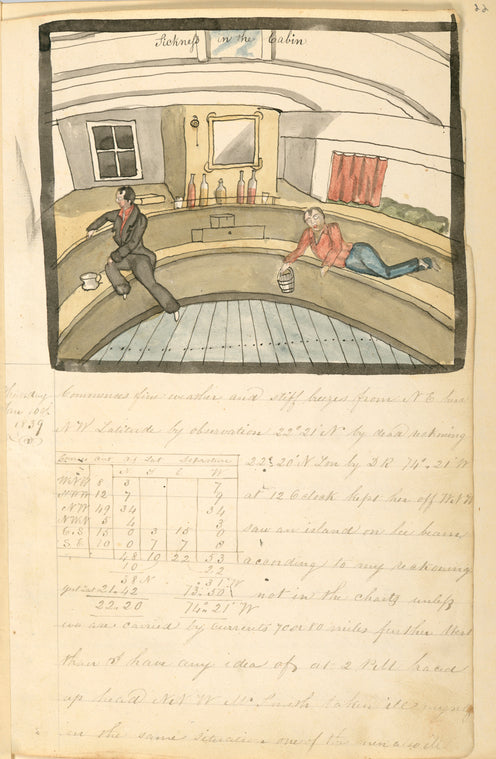 Sickness in the Cabin
Thursday
Jan 10th
1839
Commences fine weather and stiff breezes from N E
N W. Latitude by observation 22° 21' N by dead reckoning
22° 20' N Lon by D R 74° 21' W
at 12 O clock kept her off W N W
saw an island on lee beam
according to my reckoning
not in the charts unless
we are carried by currents 70 or 80 miles further West
than I have any idea of at 2 P M braced
up head N N W Mr Smith taken ill myself
in the same situation one of the men a
Course Dist Dif Lat Departure
N S E W
WNW 8 3 7
NNW 12 7 9
NW 49 34 34
NWN 5 4 3
E.S 15 0 3 15 0
S.E 10 0 7 7 0
48 10 22 53
10 22
38 N 31 W
21.42 73.50
22.20 74° 21' W